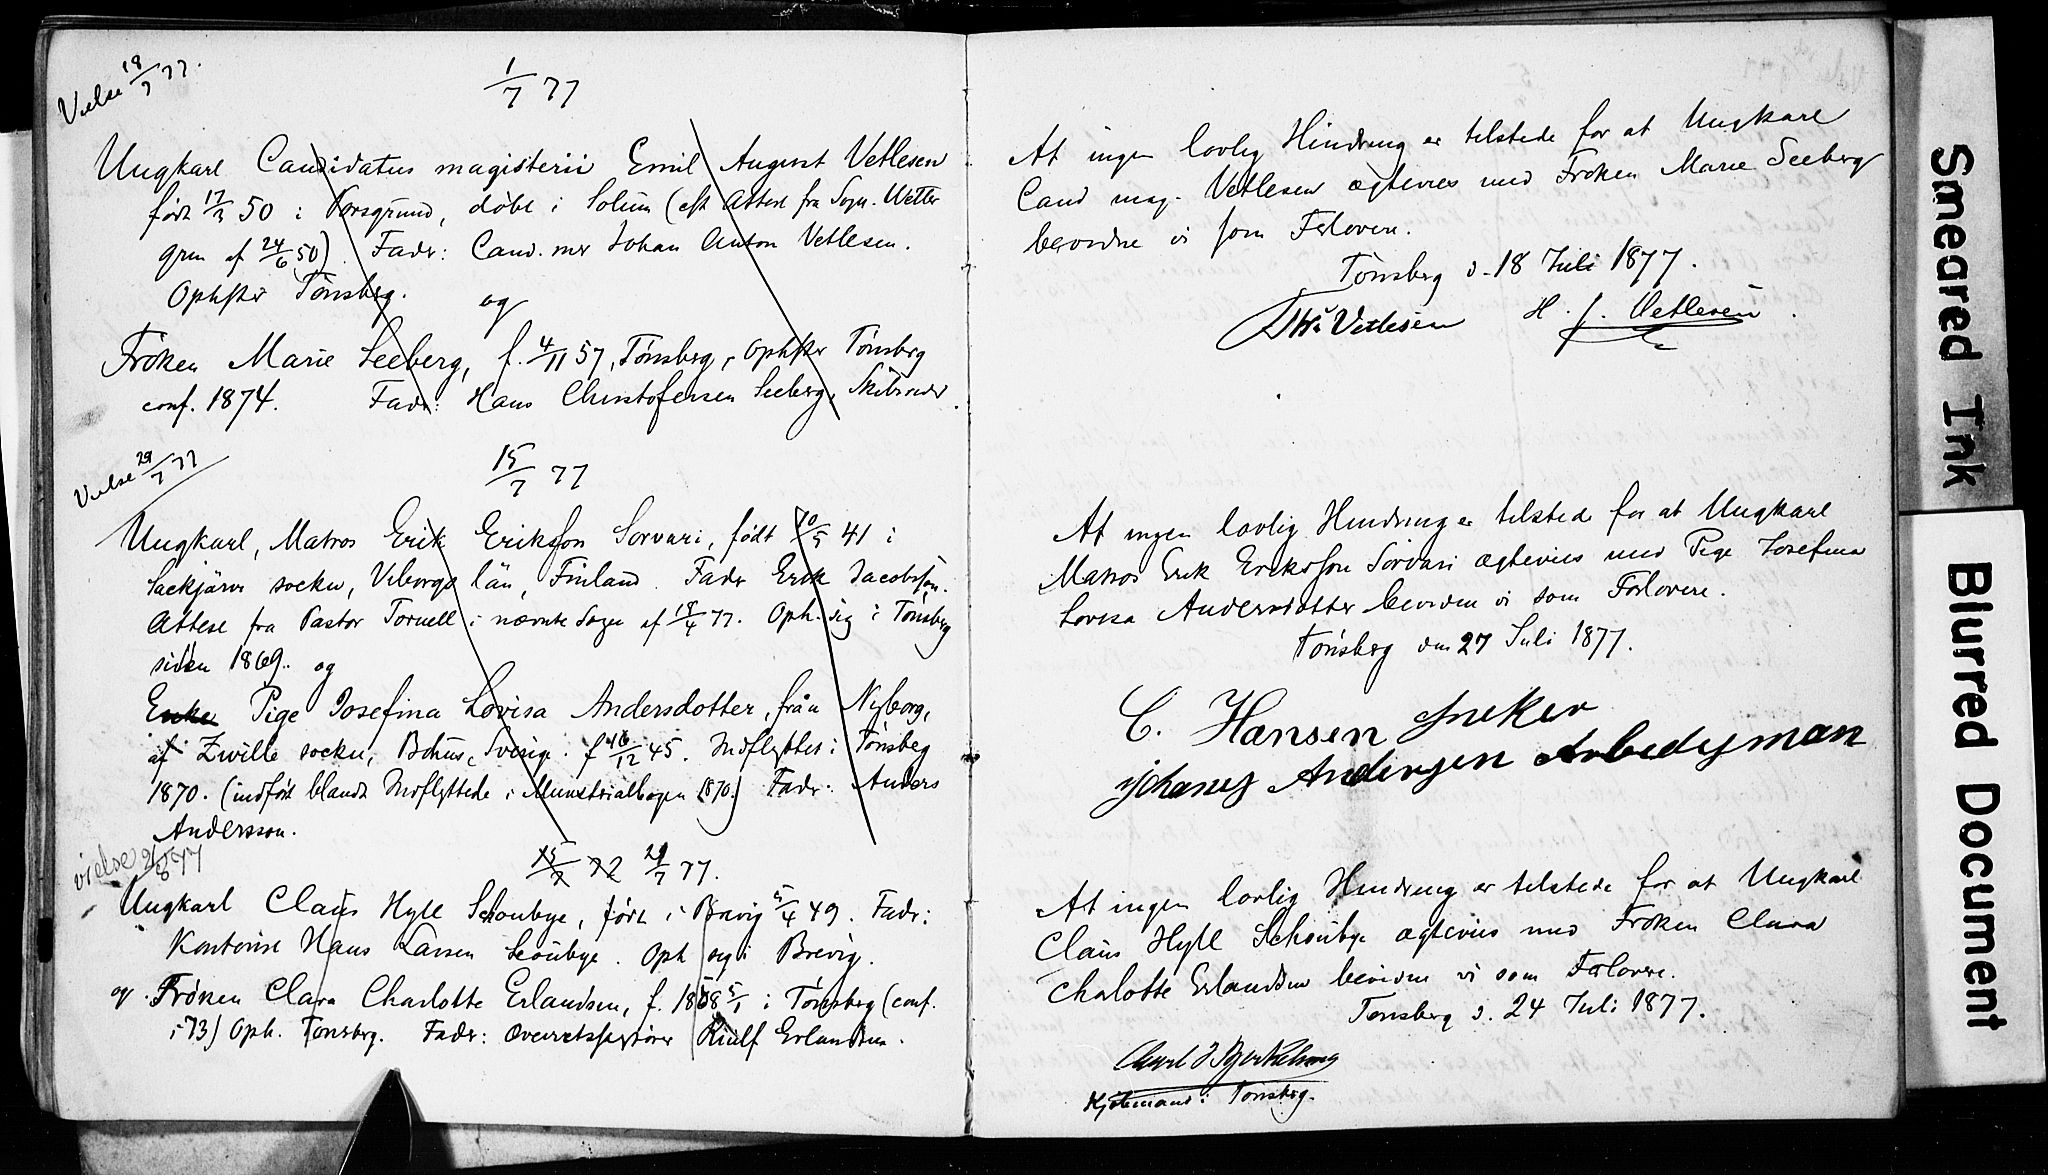 Vielse 18/7 77.
1/7 77
Ungkarl Candidatus magisterii Emil August Vetlesen
født 17/3 50 i Porsgrund, døbt i Solum (eft Attest fra Sogn. Wetter
gren af 24/6 50). Fader: Cand. mer Johan Anton Vetlesen.
Opholder Tønsberg. og
Frøken Marie Seeberg, f. 4/11 57, Tønsberg, Tønsberg
conf. 1874. Fader: Hans Christofersen Seeberg, Skibsreder.
Vielse 29/7 77
15/7 77
Ungkarl, Matros Erik Eriksson Sorvari, født 20/5 41 i
Säckjärvi socken, Viborgs län, Finland. Fader Erik Jacobsson.
Attest fra Pastor Tornell i nævnte Sogn af 18/4 77. Oph. sig i Tønsberg
siden 1869. og
Enke Pige Josefina Lovisa Andersdotter, från Nyborg,
af Zwille socken, Bohus, Sverige. f 16/12 45. Indflyttet i Tønsberg
1870. (indført blandt Indflyttede i Ministerialbogen 1870) Fader: Anders
Andersson.
vielse 26/8 77
15/7 72 29/7 77.
Ungkarl Claus Hyll Schoubye, født i Brevig 5/4 49. Fader:
Kontorist Hans Larsen Scoubye. Oph sig i Brevig.
og Frøken Clara Charlotte Erlandsen, f. 1858 5/1 i Tønsberg (conf.
i 73) Oph. Tønsberg. Fader: Overretssagfører Riulf Erlandsen.
At ingen lovlig Hindring er tilstede for at Ungkarl
Cand mag. Vetlesen ægtevies med Frøken Marie Seeberg
bevidne vi som Forlovere.
Tønsberg d. 18 Juli 1877.
Vetlesen H. J. Vetlesen.
At ingen lovlig Hindring er tilstede for at Ungkarl
Matros Erik Eriksson Sorvari ægtevies med Pige Josefina
Lovisa Andersdotter bevidne vi som Forlovere.
Tønsberg den 27 Juli 1877.
C. Hansen Sneker
Johanes Andersen Arbedesman
At ingen lovlig Hindring er tilstede for at Ungkarl
Claus Hyll Schoubye ægtevies med Frøken Clara
Charlotte Erlandsen bevidne vi som Forlovere.
Tønsberg d. 24 Juli 1877.
Kjøbmand i Tønsberg.
Smeared Ink
Blurred Document